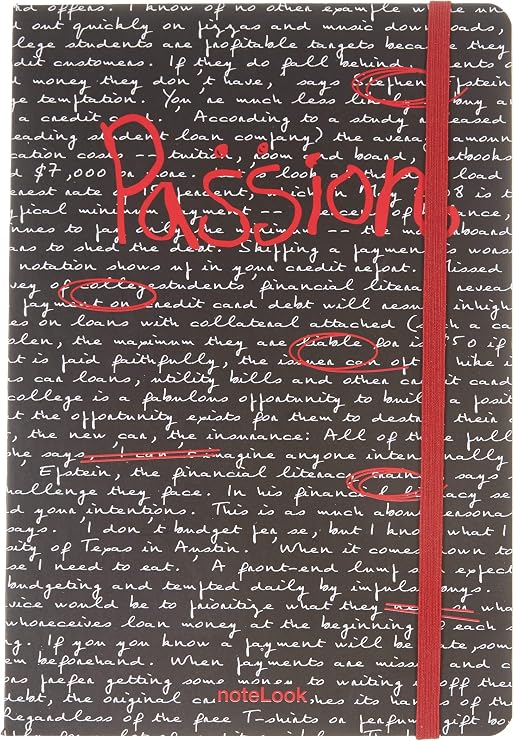 and offers. I know of no other example w
out quickly on pizzas and music downloads,
llege students are profitable targets because they
dit customers. If they do fall behind
money they don't have, says Stephen Epstein
ge temptation. You're much less
a credit card. According to a study released
eading student loan company) the average amount
cation costs -- tuition, room and board, textbooks
d $7,000 look load
erest rate 15 percent, which is
ypical minimum payment --
nues to the minimum -- the
ans to shed the debt. Skipping a payment
notation shows up in your credit report. Missed
vey of college students' financial literacy reveal
payment on credit card debt will result in high
es on loans with collateral attached (such a ca
olen, the maximum they are liable for is $50 if
t is paid faithfully, the issuer can often hike
s can loans, utility bills and other credit card
college is a fabulous opportunity to build a posit
t the opportunity exists for them to destroy their
, the new car, the insurance: All of the full
she says. I can't imagine anyone intentionally
Epstein, the financial literacy says
challenge they face. In his financial literacy se
d your intentions. This is as much about persona
says. I don't budget per se, but I know what I
sity of Texas in Austin. When it comes down to
se I need to eat. A front-end lump expect
budgeting and tempted daily by impulse buys.
vice would be to prioritize what they
who receives loan money at the beginning of each
g. If you you know a payment will be late, some
em beforehand. When payments are missed and c
ons prefer getting some money to writing off the
debt, the original hes its hands of the
Regardless of the free T-shirts or perfume gift bo
Passion
noteLook